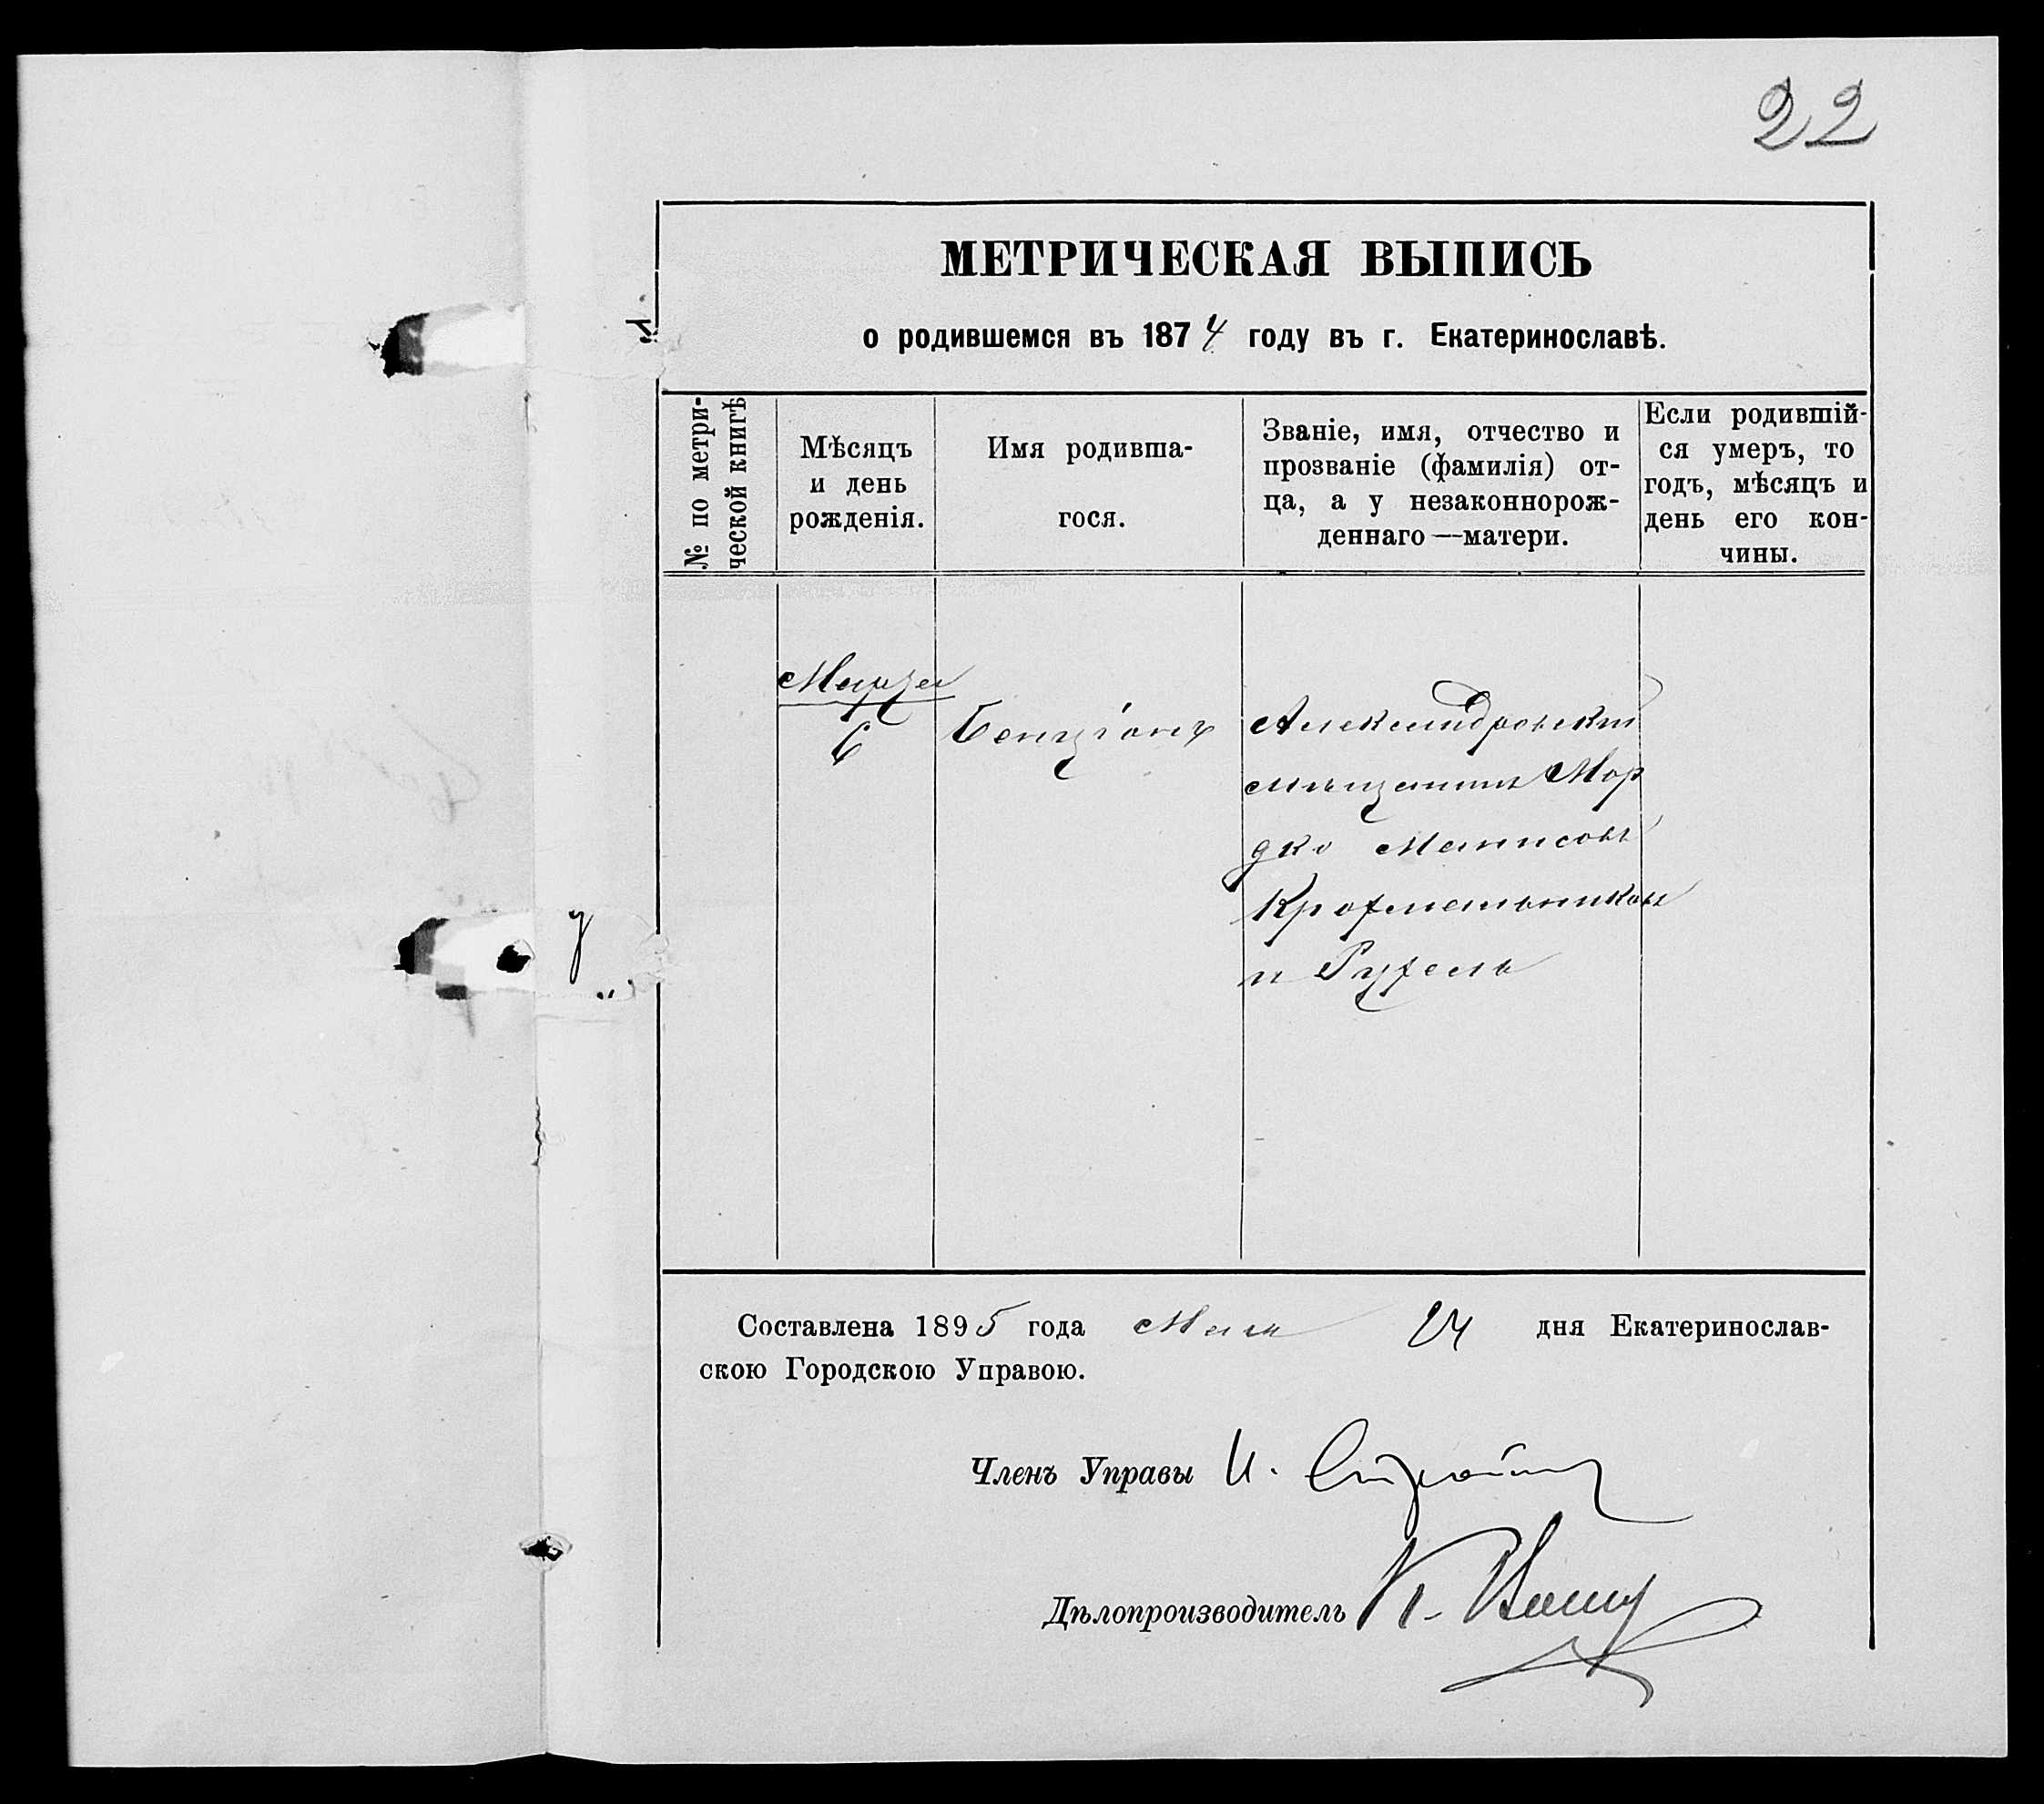 22
МЕТРИЧЕСКАЯ ВЫПИСЬ
о родившемся въ 1874 году въ г. Екатеринославѣ.
№ по метри-
ческой книгѣ
Мѣсяцъ
и день
рожденія.
Имя родивша-
гося.
Званіе, имя, отчество и
прозваніе (фамилія) от-
ца, а у незаконнорож-
деннаго—матери.
Если родившій-
ся умеръ, то
годъ, мѣсяцъ и
день его кон-
чины.
Марта
6
Бенціонъ
Александровскій
мѣщанинъ Мор
дко Манисовъ
Крахмальниковъ
и Рухель
Составлена 1895 года Мая 24 дня Екатеринослав-
скою Городскою Управою.
Членъ Управы И.
Дѣлопроизводитель К.